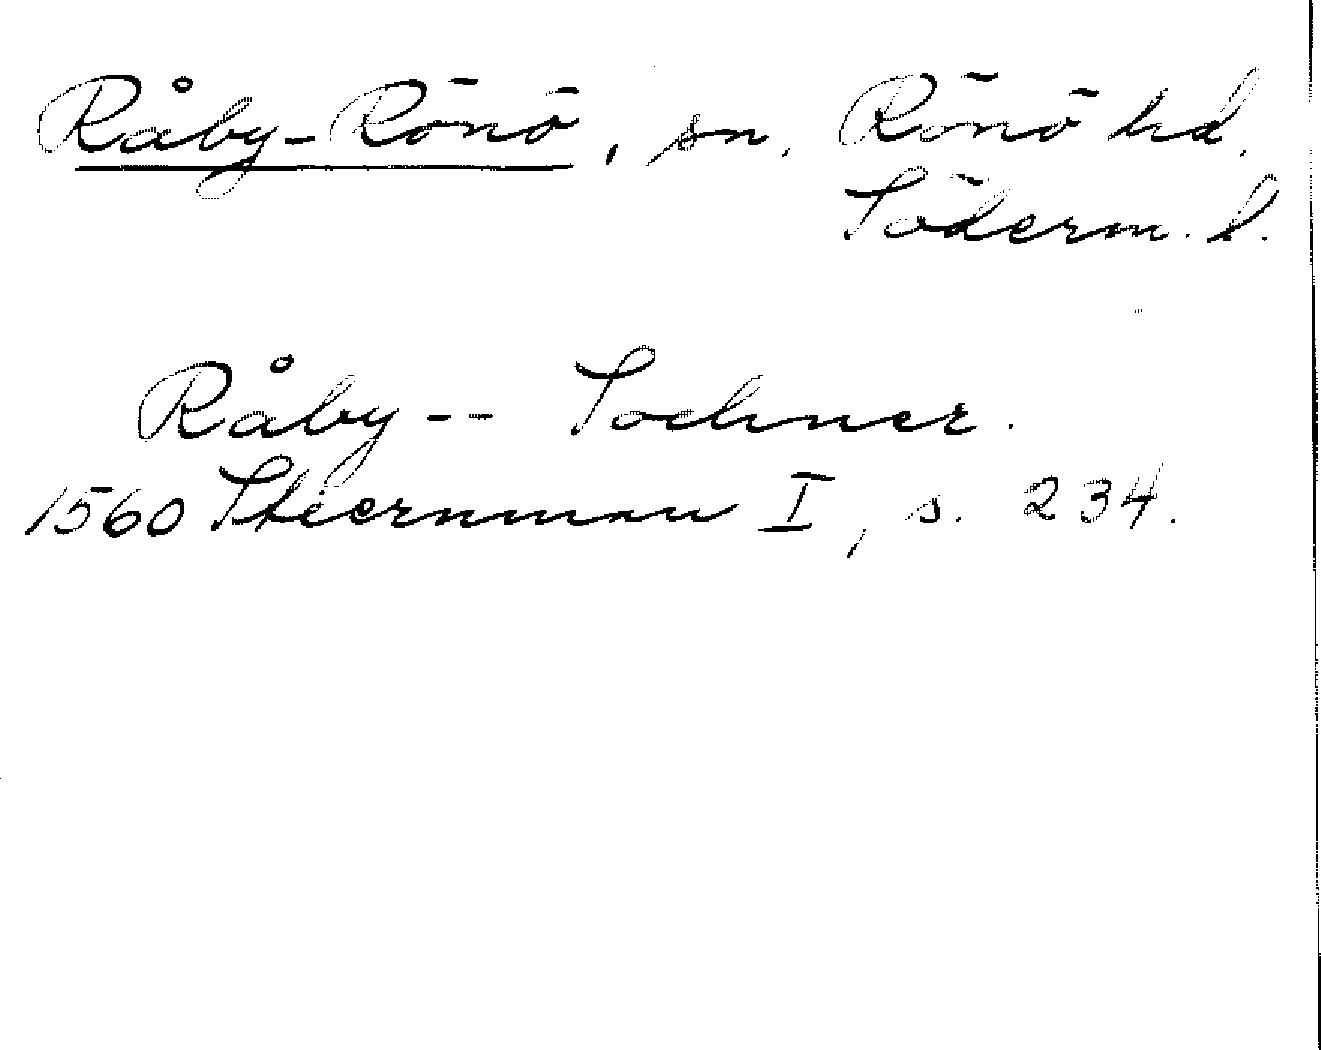 Råby-Rönö, sn. Rönö hd.
Söderm. l.
Råby -- Sochner.
1560 Stiernman I, s. 234.